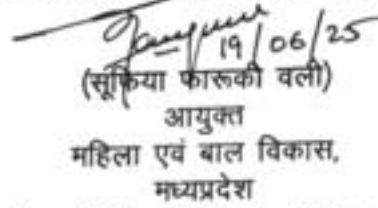 19/06/25
(सूफिया फारूकी वली)
आयुक्त
महिला एवं बाल विकास,
मध्यप्रदेश